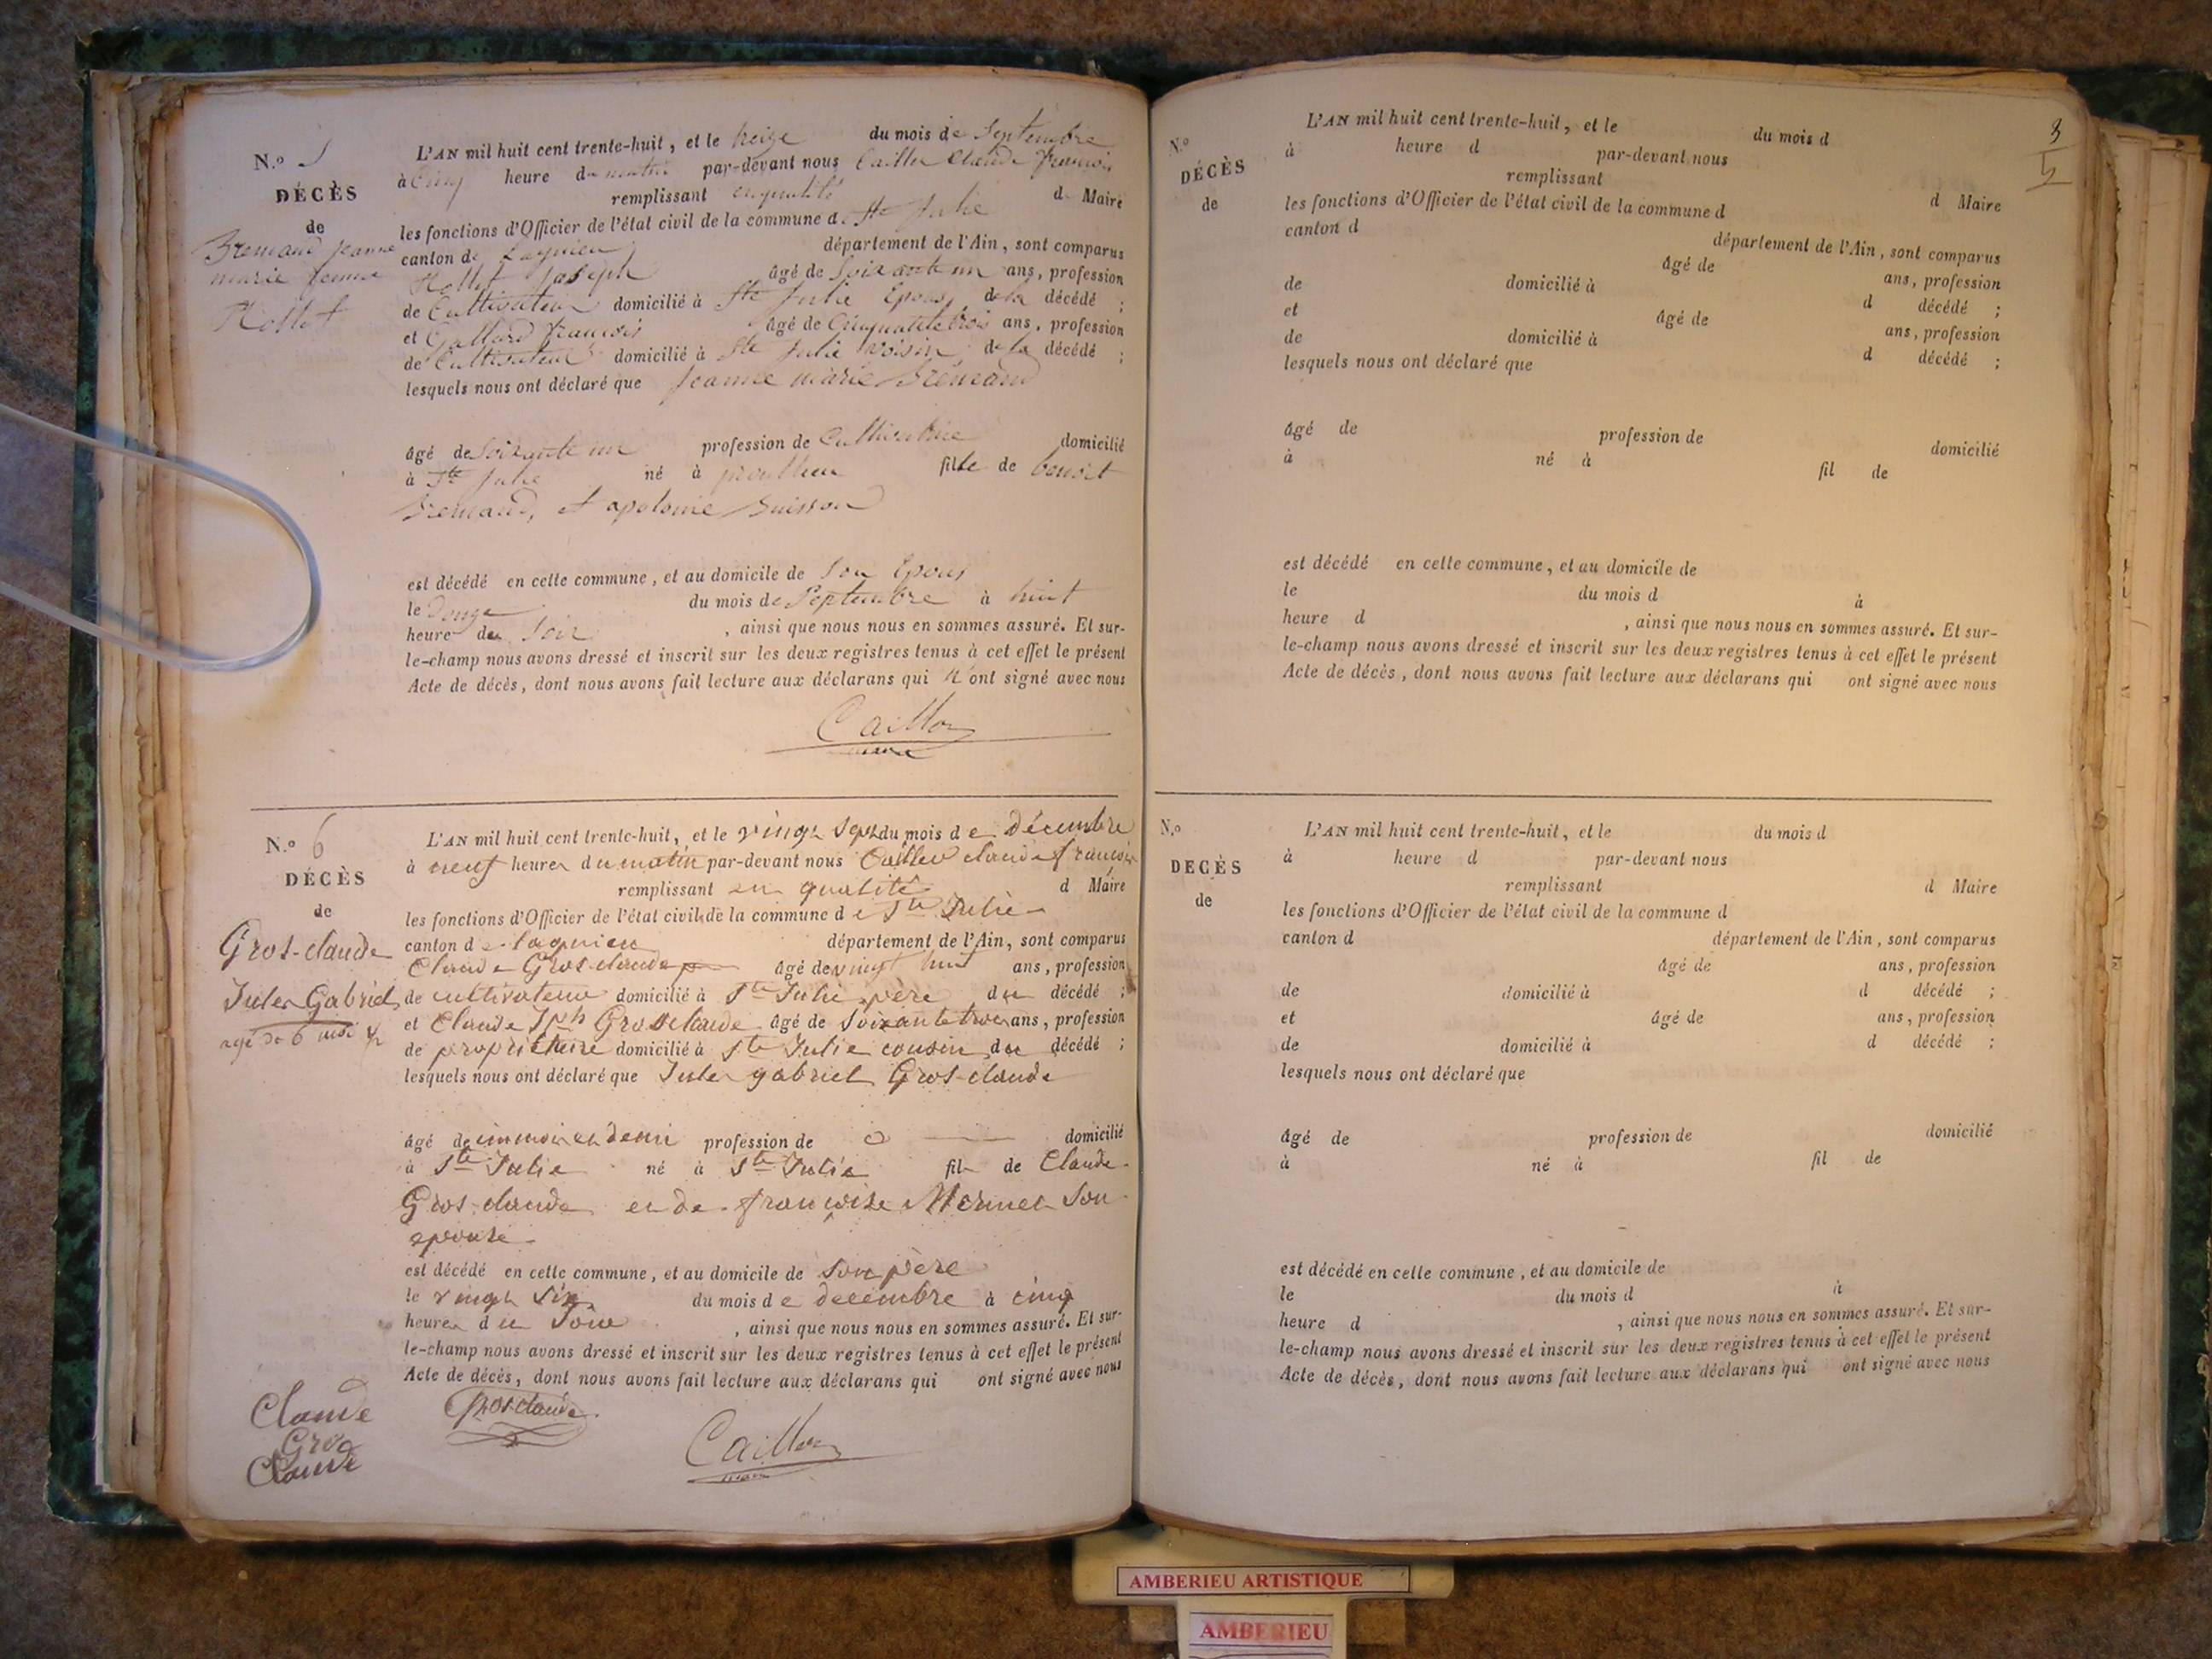 N.º 5
DÉCÈS
de
Bremand Jeanne
marie femme
Hollot
L'AN mil huit cent trente-huit, et le treize du mois de Septembre
à Cinq heure du matin par-devant nous Caillu Claude François
remplissant en qualité d Maire
les fonctions d'Officier de l'état civil de la commune de Ste Julie
canton de Lagnieu département de l'Ain, sont comparus
Hollot Joseph âgé de Soixante un ans, profession
de Cultivateur domicilié à Ste Julie Epoux de la décédé ;
et Gallard françois âgé de Cinquante trois ans, profession
de Cultivateur domicilié à Ste Julie voisin de la décédé ;
lesquels nous ont déclaré que Jeanne marie Brémand
âgé de Soixante un profession de Cultivatrice domicilié
à Ste Julie né à fille de benoit
Bremand, et apolonie Buisson
est décédé en cette commune, et au domicile de Son Epoux
le Douze du mois de Septembre à huit
heure du Soir , ainsi que nous nous en sommes assuré. Et sur-
le-champ nous avons dressé et inscrit sur les deux registres tenus à cet effet le présent
Acte de décès, dont nous avons fait lecture aux déclarans qui n'ont signé avec nous
N.º 6
DÉCÈS
de
Gros-claude
Jules Gabriel
agé de 6 mois ½
L'AN mil huit cent trente-huit, et le vingt Sept du mois de décembre
à neuf heures du matin par-devant nous Caillu claude françois
remplissant en qualité d Maire
les fonctions d'Officier de l'état civil de la commune de Ste Julie
canton de lagnieu département de l'Ain, sont comparus
Claude Gros-claude âgé de vingt huit ans, profession
de cultivateur domicilié à Ste Julie père du décédé ;
et Claude Jph Grosclaude âgé de Soixante trois ans, profession
de propriétaire domicilié à Ste Julie cousin du décédé ;
lesquels nous ont déclaré que Jules gabriel Gros-claude
âgé de mois et demi profession de domicilié
à Ste Julie né à Ste Julie fils de Claude
Gros-claude et de françoise Mermet Son
epouse
est décédé en cette commune, et au domicile de Son père
le vingt Six du mois de decembre à cinq
heures du Soir , ainsi que nous nous en sommes assuré. Et sur-
le-champ nous avons dressé et inscrit sur les deux registres tenus à cet effet le présent
Acte de décès, dont nous avons fait lecture aux déclarans qui ont signé avec nous
Claude
Gros
Claude
Grosclaude
3
N.º
DÉCÈS
de
L'AN mil huit cent trente-huit, et le du mois d
à heure d par-devant nous
remplissant d Maire
les fonctions d'Officier de l'état civil de la commune d
canton d département de l'Ain, sont comparus
âgé de ans, profession
de domicilié à d décédé ;
et âgé de ans, profession
de domicilié à d décédé ;
lesquels nous ont déclaré que
âgé de profession de domicilié
à né à fil de
est décédé en cette commune, et au domicile de
le du mois d à
heure d , ainsi que nous nous en sommes assuré. Et sur-
le-champ nous avons dressé et inscrit sur les deux registres tenus à cet effet le présent
Acte de décès, dont nous avons fait lecture aux déclarans qui ont signé avec nous
N.º
DECÈS
de
L'AN mil huit cent trente-huit, et le du mois d
à heure d par-devant nous
remplissant d Maire
les fonctions d'Officier de l'état civil de la commune d
canton d département de l'Ain, sont comparus
âgé de ans, profession
de domicilié à d décédé ;
et âgé de ans, profession
de domicilié à d décédé ;
lesquels nous ont déclaré que
âgé de profession de domicilié
à né à fil de
est décédé en cette commune, et au domicile de
le du mois d à
heure d , ainsi que nous nous en sommes assuré. Et sur-
le-champ nous avons dressé et inscrit sur les deux registres tenus à cet effet le présent
Acte de décès, dont nous avons fait lecture aux déclarans qui ont signé avec nous
AMBERIEU ARTISTIQUE
AMBERIEU